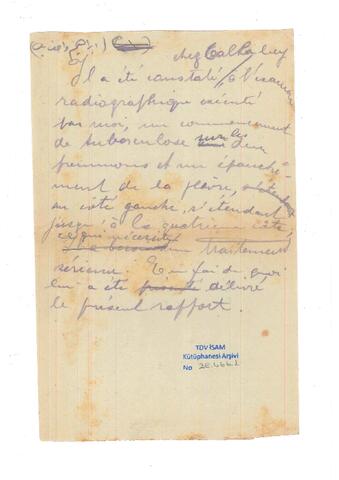 chez
Il a été constaté, à l'examen
radiographique exécuté
par moi, un commencement
de tuberculose sur les deux
poumons et un épanche-
ment de la plèvre,
au côté gauche, s'étendant
jusqu'à la quatrième côte,
ce qui nécessite
un traitement
sérieux. En foi de quoi
lui a été délivré
le présent rapport.
TDV İSAM
Kütüphanesi Arşivi
No